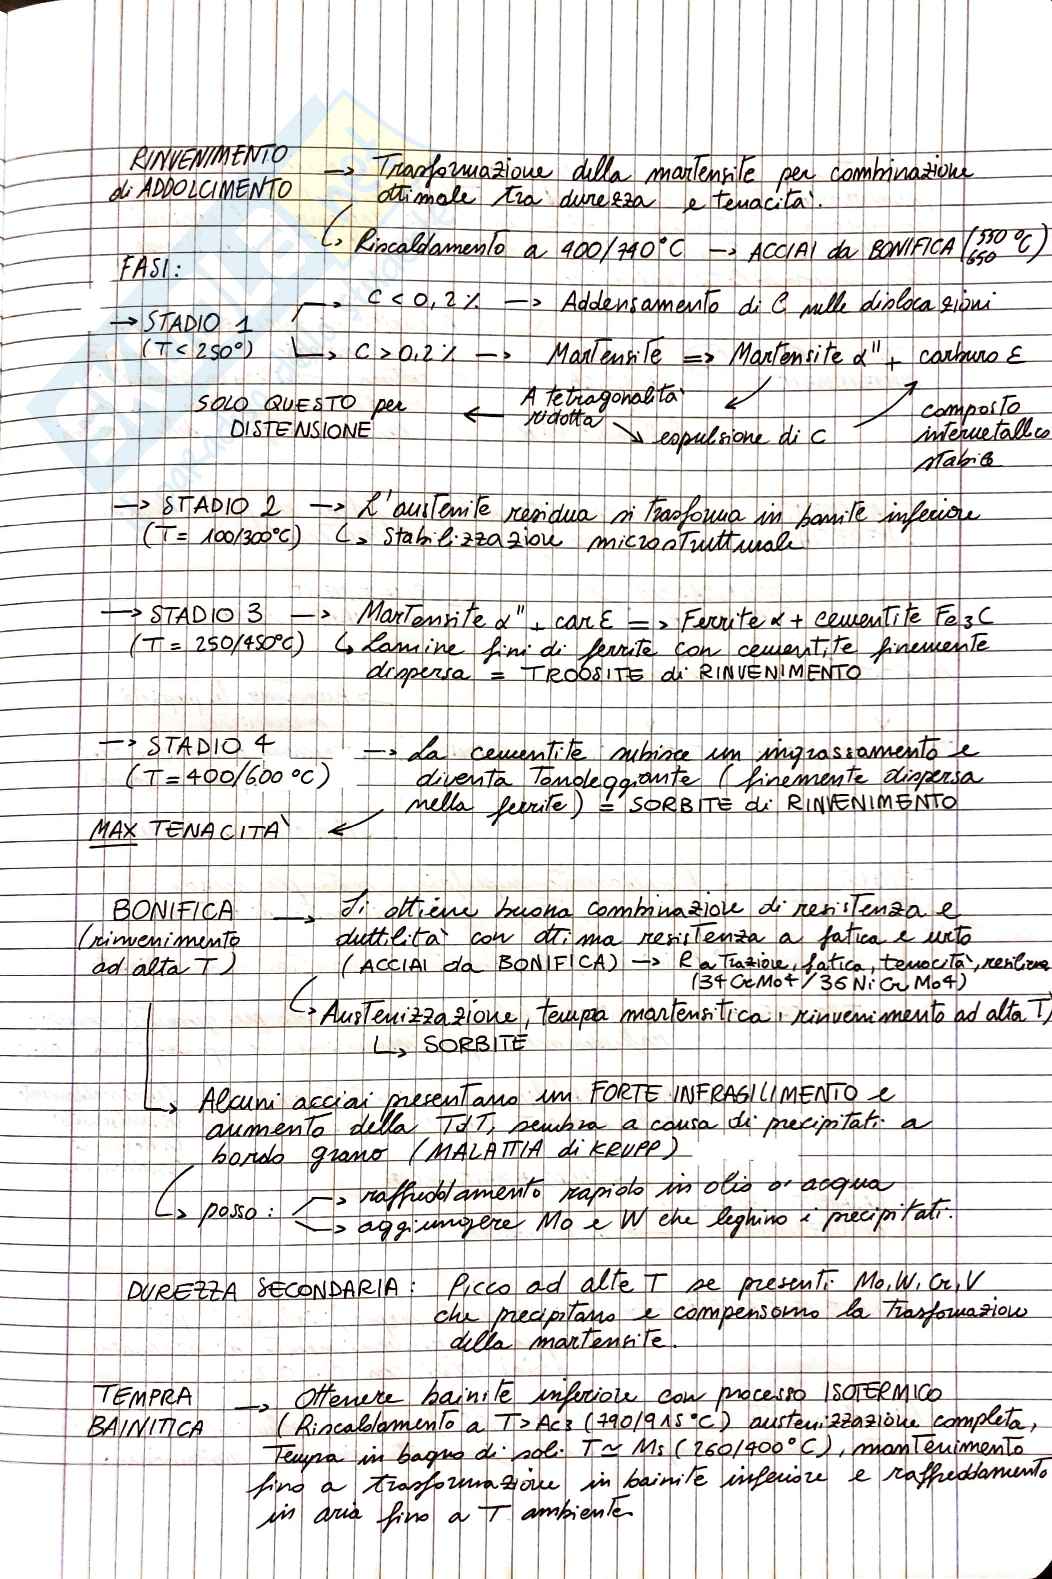 RINVENIMENTO
di ADDOLCIMENTO
→ Trasformazione della martensite per combinazione
ottimale tra durezza e tenacità.
↳ Riscaldamento a 400/740°C → ACCIAI da BONIFICA (550/650 °C)
FASI:
→ STADIO 1
(T < 250°)
→ C < 0,2% → Addensamento di C nelle dislocazioni
↳ C > 0,2% → Martensite => Martensite α" + carburo ε
SOLO QUESTO per
DISTENSIONE
← A tetragonalità
ridotta
↘ espulsione di C
composto
intermetallico
stabile
→ STADIO 2 → L'austenite residua si trasforma in bainite inferiore
(T= 100/300°C) ↳ Stabilizzazione microstrutturale
→ STADIO 3 → Martensite α" + car ε => Ferrite α + cementite Fe3C
(T = 250/450°C) ↳ Lamine fini di ferrite con cementite finemente
dispersa = TROOSITE di RINVENIMENTO
→ STADIO 4 → La cementite subisce un ingrassamento e
(T=400/600°C) diventa tondeggiante (finemente dispersa
nella ferrite) = SORBITE di RINVENIMENTO
MAX TENACITA' ←
BONIFICA → Si ottiene buona combinazione di resistenza e
(rinvenimento duttilità con ottima resistenza a fatica e urto
ad alta T) (ACCIAI da BONIFICA) → R a Trazione, fatica, tenacità,
(34CrMo4/36NiCrMo4)
↳ Austenizzazione, tempra martensitica, rinvenimento ad alta T,
↳ SORBITE
↳ Alcuni acciai presentano un FORTE INFRAGILIMENTO e
aumento della TdT, sembra a causa di precipitati a
bordo grano (MALATTIA di KRUPP)
↳ posso: → raffreddamento rapido in olio o acqua
→ aggiungere Mo e W che leghino i precipitati.
DUREZZA SECONDARIA: Picco ad alte T se presenti Mo, W, Cr, V
che precipitano e compensano la trasformazione
della martensite.
TEMPRA
BAINITICA
→ Ottenere bainite inferiore con processo ISOTERMICO
(Riscaldamento a T > Ac3 (790/915°C) austenizzazione completa,
Tempra in bagno di sali T ≃ Ms (260/400°C), mantenimento
fino a trasformazione in bainite inferiore e raffreddamento
in aria fino a T ambiente.